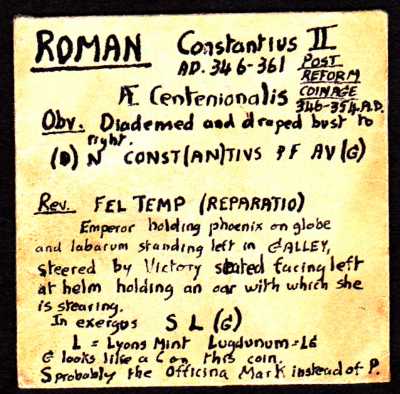 ROMAN Constantius II
AD. 346-361 POST
REFORM
Æ Centenionalis COINAGE
346-354 A.D.
Obv. Diademed and draped bust to
right.
(D) N CONST(AN)TIVS PF AV(G)
Rev. FEL TEMP (REPARATIO)
Emperor holding phoenix on globe
and labarum standing left in GALLEY,
steered by Victory seated facing left
at helm holding an oar with which she
is stearing.
In exergos SL(G)
L = Lyons Mint Lugdunum = LG
G looks like a C on this coin.
S probably the Officina Mark instead of P.